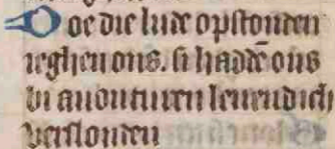 Doe die lude opstonden
ieghen ons. si haddē ons
bi auonturen leuendich
verslonden